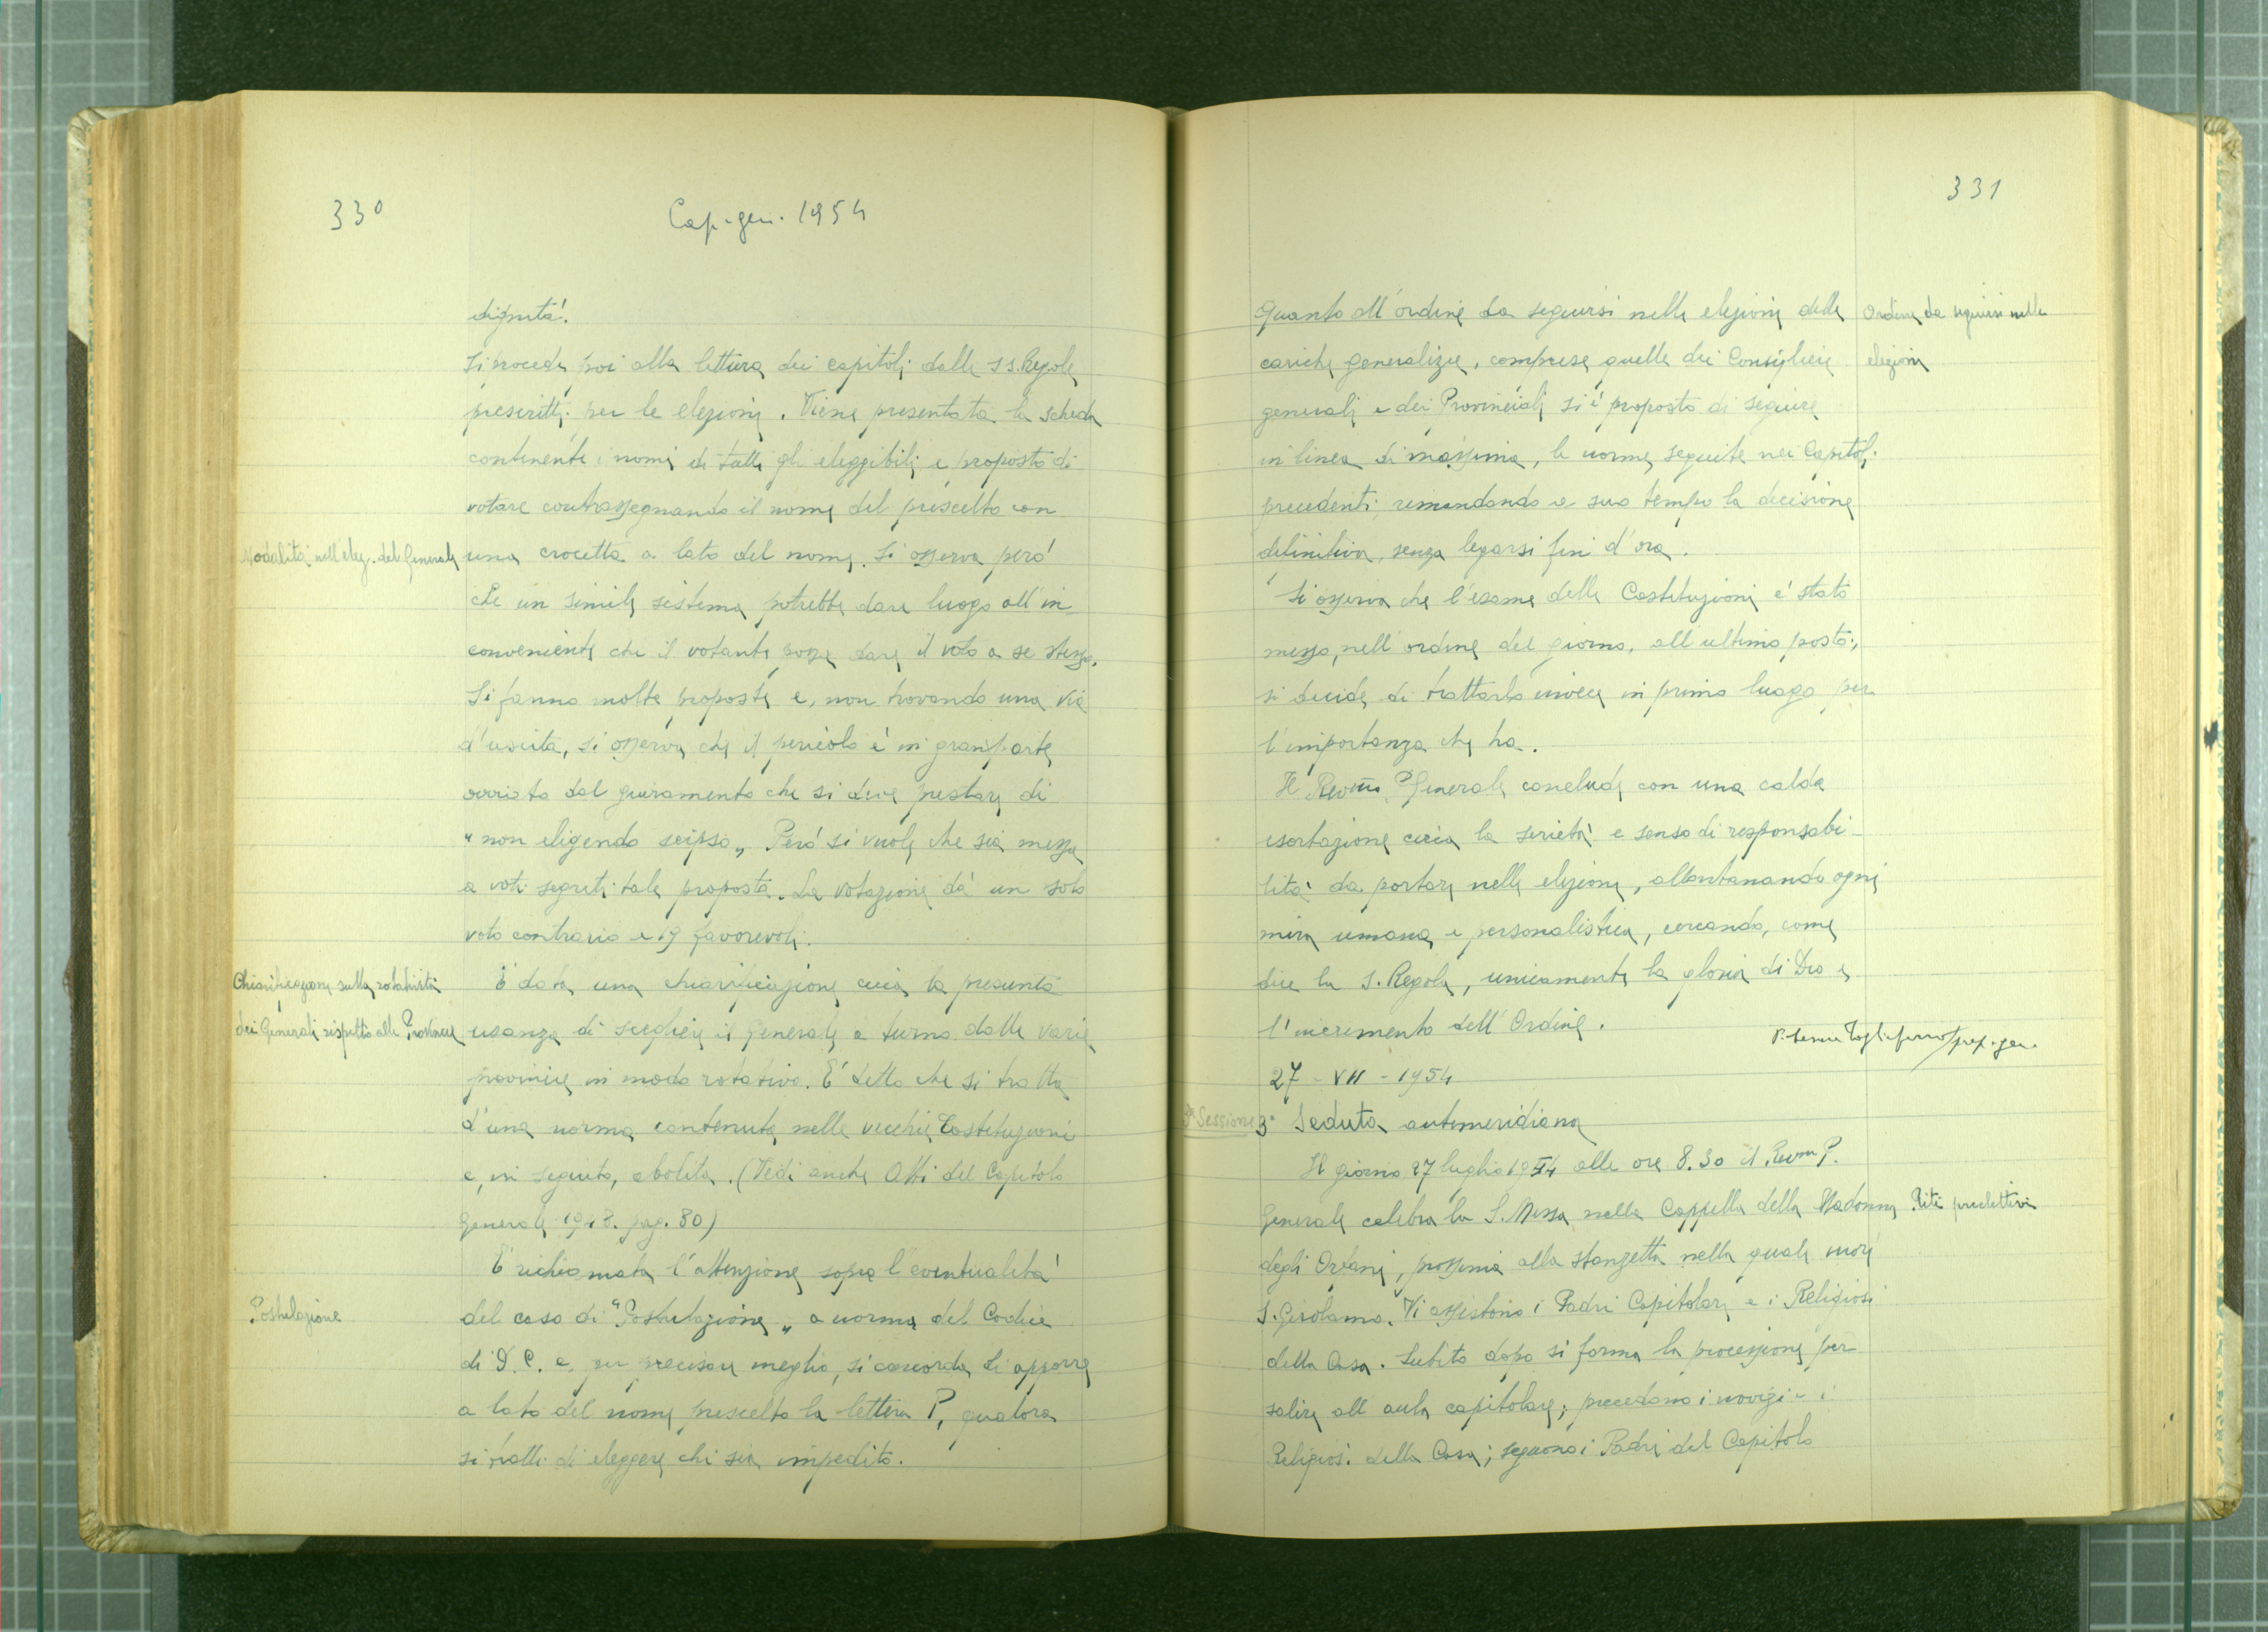 330
Cap. gen. 1954
dignità.
Si procede poi alla lettura dei capitoli dalle SS. Regole
prescritti per le elezioni. Viene presentata la scheda
contenente i nomi di tutti gli eleggibili e proposto di
votare contrassegnando il nome del prescelto con
Modalità nell'elez. del Generale
una crocetta a lato del nome. Si osserva però
che un simile sistema potrebbe dare luogo all'in-
conveniente che il votante possa dare il voto a se stesso.
Si fanno molte proposte e, non trovando una via
d'uscita, si osserva che il pericolo è in gran parte
ovviato dal giuramento che si deve prestare di
"non eligendo seipso„ Però si vuole che sia messa
a voti segreti tale proposta. La votazione dà un solo
voto contrario e 19 favorevoli.
Chiarificazione sulla rotatività
dei Generali rispetto alle Provincie
È data una chiarificazione circa la presunta
usanza di scegliere il Generale a turno dalle varie
provincie in modo rotativo. È detto che si tratta
d'una norma contenuta nelle vecchie Costituzioni
e, in seguito, abolita. (Vedi anche Atti del Capitolo
Generale 1948. pag. 80)
È richiamata l'attenzione sopra l'eventualità
Postulazione
del caso di "Postulazione„ a norma del Codice
di D. C. e, per precisare meglio, si concorda di apporre
a lato del nome prescelto la lettera P, qualora
si tratti di eleggere chi sia impedito.
331
Quanto all'ordine da seguirsi nelle elezioni delle
Ordine da seguirsi nelle
elezioni
cariche generalizie, comprese quelle dei Consiglieri
generali e dei Provinciali si è proposto di seguire
in linea di massima, le norme seguite nei Capitoli
precedenti, rimandando a suo tempo la decisione
definitiva, senza legarsi fin d'ora.
Si osserva che l'esame delle Costituzioni è stato
messo, nell'ordine del giorno, all'ultimo posto;
si decide di trattarlo invece in primo luogo per
l'importanza che ha.
Il Rev.mo P. Generale conclude con una calda
esortazione circa la serietà e senso di responsabi-
lità da portare nelle elezioni, allontanando ogni
mira umana e personalistica, cercando, come
dice la S. Regola, unicamente la gloria di Dio e
l'incremento dell'Ordine.
Tagliaferro prep. gen.
27 - VII - 1954
3ª Sessione
3ª Seduta antimeridiana
Il giorno 27 luglio 1954 alle ore 8.30 il Rev.mo P.
Generale celebra la S. Messa nella Cappella della Madonna
Riti preelettivi
degli Orfani, prossima alla stanzetta nella quale morì
S. Girolamo. Vi assistono i Padri Capitolari e i Religiosi
della Casa. Subito dopo si forma la processione per
salire all'aula capitolare; precedono i novizi e i
Religiosi della Casa; seguono i Padri del Capitolo